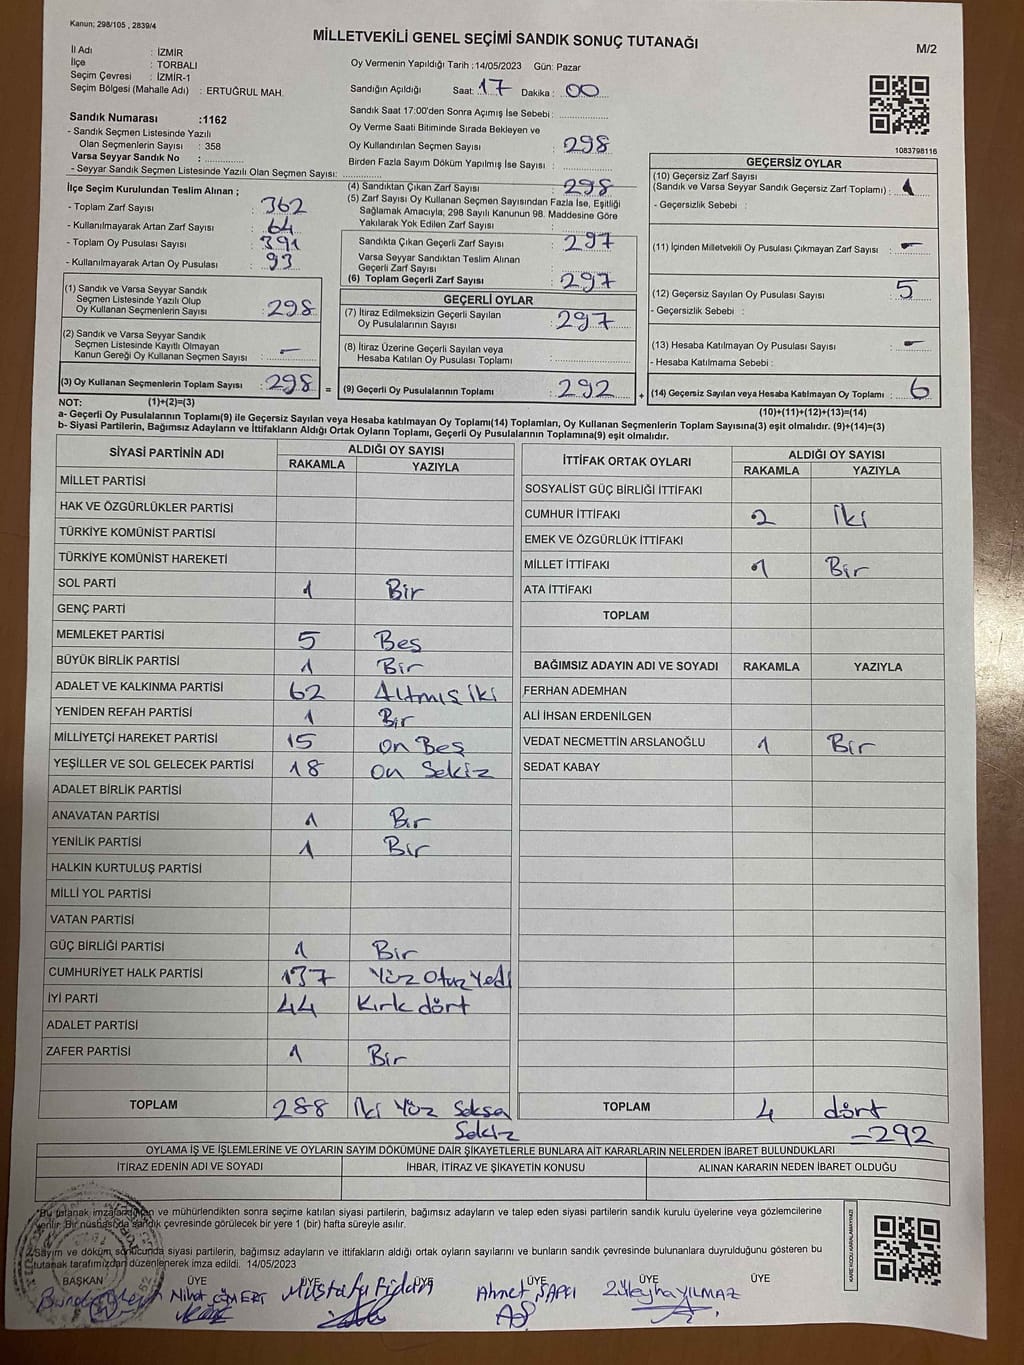 Kanun; 298/105 , 2839/4
MİLLETVEKİLİ GENEL SEÇİMİ SANDIK SONUÇ TUTANAĞI
M/2
İl Adı : İZMİR
İlçe : TORBALI
Seçim Çevresi : İZMİR-1
Seçim Bölgesi (Mahalle Adı) : ERTUĞRUL MAH.
Oy Vermenin Yapıldığı Tarih :14/05/2023 Gün: Pazar
Sandığın Açıldığı Saat: 17 Dakika : 00
Sandık Saat 17:00'den Sonra Açımış İse Sebebi :
Oy Verme Saati Bitiminde Sırada Bekleyen ve
Oy Kullandırılan Seçmen Sayısı : 298
Birden Fazla Sayım Döküm Yapılmış İse Sayısı :
1083798116
Sandık Numarası :1162
- Sandık Seçmen Listesinde Yazılı
Olan Seçmenlerin Sayısı : 358
Varsa Seyyar Sandık No :
- Seyyar Sandık Seçmen Listesinde Yazılı Olan Seçmen Sayısı:
İlçe Seçim Kurulundan Teslim Alınan ;
- Toplam Zarf Sayısı : 362
- Kullanılmayarak Artan Zarf Sayısı : 64
- Toplam Oy Pusulası Sayısı : 391
- Kullanılmayarak Artan Oy Pusulası : 93
(1) Sandık ve Varsa Seyyar Sandık
Seçmen Listesinde Yazılı Olup
Oy Kullanan Seçmenlerin Sayısı : 298
(2) Sandık ve Varsa Seyyar Sandık
Seçmen Listesinde Kayıtlı Olmayan
Kanun Gereği Oy Kullanan Seçmen Sayısı : -
(3) Oy Kullanan Seçmenlerin Toplam Sayısı : 298 =
(4) Sandıktan Çıkan Zarf Sayısı : 298
(5) Zarf Sayısı Oy Kullanan Seçmen Sayısından Fazla İse, Eşitliği
Sağlamak Amacıyla; 298 Sayılı Kanunun 98. Maddesine Göre
Yakılarak Yok Edilen Zarf Sayısı :
Sandıkta Çıkan Geçerli Zarf Sayısı : 297
Varsa Seyyar Sandıktan Teslim Alınan
Geçerli Zarf Sayısı :
(6) Toplam Geçerli Zarf Sayısı : 297
GEÇERLİ OYLAR
(7) İtiraz Edilmeksizin Geçerli Sayılan
Oy Pusulalarının Sayısı : 297
(8) İtiraz Üzerine Geçerli Sayılan veya
Hesaba Katılan Oy Pusulası Toplamı :
(9) Geçerli Oy Pusulalarının Toplamı : 292 +
GEÇERSİZ OYLAR
(10) Geçersiz Zarf Sayısı
(Sandık ve Varsa Seyyar Sandık Geçersiz Zarf Toplamı) : 1
- Geçersizlik Sebebi :
(11) İçinden Milletvekili Oy Pusulası Çıkmayan Zarf Sayısı : -
(12) Geçersiz Sayılan Oy Pusulası Sayısı : 5
- Geçersizlik Sebebi :
(13) Hesaba Katılmayan Oy Pusulası Sayısı : -
- Hesaba Katılmama Sebebi :
(14) Geçersiz Sayılan veya Hesaba Katılmayan Oy Toplamı : 6
NOT: (1)+(2)=(3) (10)+(11)+(12)+(13)=(14)
a- Geçerli Oy Pusulalarının Toplamı(9) ile Geçersiz Sayılan veya Hesaba katılmayan Oy Toplamı(14) Toplamları, Oy Kullanan Seçmenlerin Toplam Sayısına(3) eşit olmalıdır. (9)+(14)=(3)
b- Siyasi Partilerin, Bağımsız Adayların ve İttifakların Aldığı Ortak Oyların Toplamı, Geçerli Oy Pusulalarının Toplamına(9) eşit olmalıdır.
SİYASİ PARTİNİN ADI ALDIĞI OY SAYISI
RAKAMLA YAZIYLA
MİLLET PARTİSİ
HAK VE ÖZGÜRLÜKLER PARTİSİ
TÜRKİYE KOMÜNİST PARTİSİ
TÜRKİYE KOMÜNİST HAREKETİ
SOL PARTİ 1 Bir
GENÇ PARTİ
MEMLEKET PARTİSİ 5 Beş
BÜYÜK BİRLİK PARTİSİ 1 Bir
ADALET VE KALKINMA PARTİSİ 62 Altmış iki
YENİDEN REFAH PARTİSİ 1 Bir
MİLLİYETÇİ HAREKET PARTİSİ 15 on Beş
YEŞİLLER VE SOL GELECEK PARTİSİ 18 on Sekiz
ADALET BİRLİK PARTİSİ
ANAVATAN PARTİSİ 1 Bir
YENİLİK PARTİSİ 1 Bir
HALKIN KURTULUŞ PARTİSİ
MİLLİ YOL PARTİSİ
VATAN PARTİSİ
GÜÇ BİRLİĞİ PARTİSİ 1 Bir
CUMHURİYET HALK PARTİSİ 137 Yüz Otuz Yedi
İYİ PARTİ 44 Kırk dört
ADALET PARTİSİ
ZAFER PARTİSİ 1 Bir
TOPLAM 288 İki Yüz Seksa
Sekiz
İTTİFAK ORTAK OYLARI ALDIĞI OY SAYISI
RAKAMLA YAZIYLA
SOSYALİST GÜÇ BİRLİĞİ İTTİFAKI
CUMHUR İTTİFAKI 2 İki
EMEK VE ÖZGÜRLÜK İTTİFAKI
MİLLET İTTİFAKI 1 Bir
ATA İTTİFAKI
TOPLAM
BAĞIMSIZ ADAYIN ADI VE SOYADI RAKAMLA YAZIYLA
FERHAN ADEMHAN
ALİ İHSAN ERDENİLGEN
VEDAT NECMETTİN ARSLANOĞLU 1 Bir
SEDAT KABAY
TOPLAM 4 dört
=292
OYLAMA İŞ VE İŞLEMLERİNE VE OYLARIN SAYIM DÖKÜMÜNE DAİR ŞİKAYETLERLE BUNLARA AİT KARARLARIN NELERDEN İBARET BULUNDUKLARI
İTİRAZ EDENİN ADI VE SOYADI İHBAR, İTİRAZ VE ŞİKAYETİN KONUSU ALINAN KARARIN NEDEN İBARET OLDUĞU
Bu tutanak imzalandıktan ve mühürlendikten sonra seçime katılan siyasi partilerin, bağımsız adayların ve talep eden siyasi partilerin sandık kurulu üyelerine veya gözlemcilerine
verilir. Bir nüshası da sandık çevresinde görülecek bir yere 1 (bir) hafta süreyle asılır.
Sayım ve döküm sonucunda siyasi partilerin, bağımsız adayların ve ittifakların aldığı ortak oyların sayılarını ve bunların sandık çevresinde bulunanlara duyrulduğunu gösteren bu
tutanak tarafımızdan düzenlenerek imza edildi. 14/05/2023
KARE KODU KARALAMAYINIZ!
BAŞKAN ÜYE ÜYE ÜYE ÜYE ÜYE ÜYE
Nihat CÖMERT Mustafa Fidan Ahmet SAPCI Züleyha YILMAZ